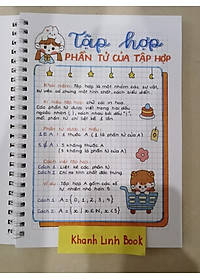 Tập hợp
PHẦN TỬ CỦA TẬP HỢP
Khái niệm: Tập hợp là một nhóm các sự vật,
Kí hiệu tập hợp: chữ cái in hoa.
Các phần tử được viết trong hai dấu
ngoặc nhọn { }, cách nhau bởi dấu ";".
Mỗi phần tử chỉ liệt kê 1 lần.
Phần tử được kí hiệu
1 ∈ A | 1 thuộc A (1 là phần tử của A)
5 ∉ A | 5 không thuộc A
(5 không là phần tử của A)
Cách viết tập hợp:
Cách 1: Liệt kê các phần tử.
Cách 2: Chỉ ra tính chất đặc trưng.
Ví dụ: Tập hợp A gồm các số
tự nhiên nhỏ hơn 5
Cách 1: A = {0, 1, 2, 3, 4}
Cách 2: A = {x | x ∈ N, x < 5}
Khanh Linh Book